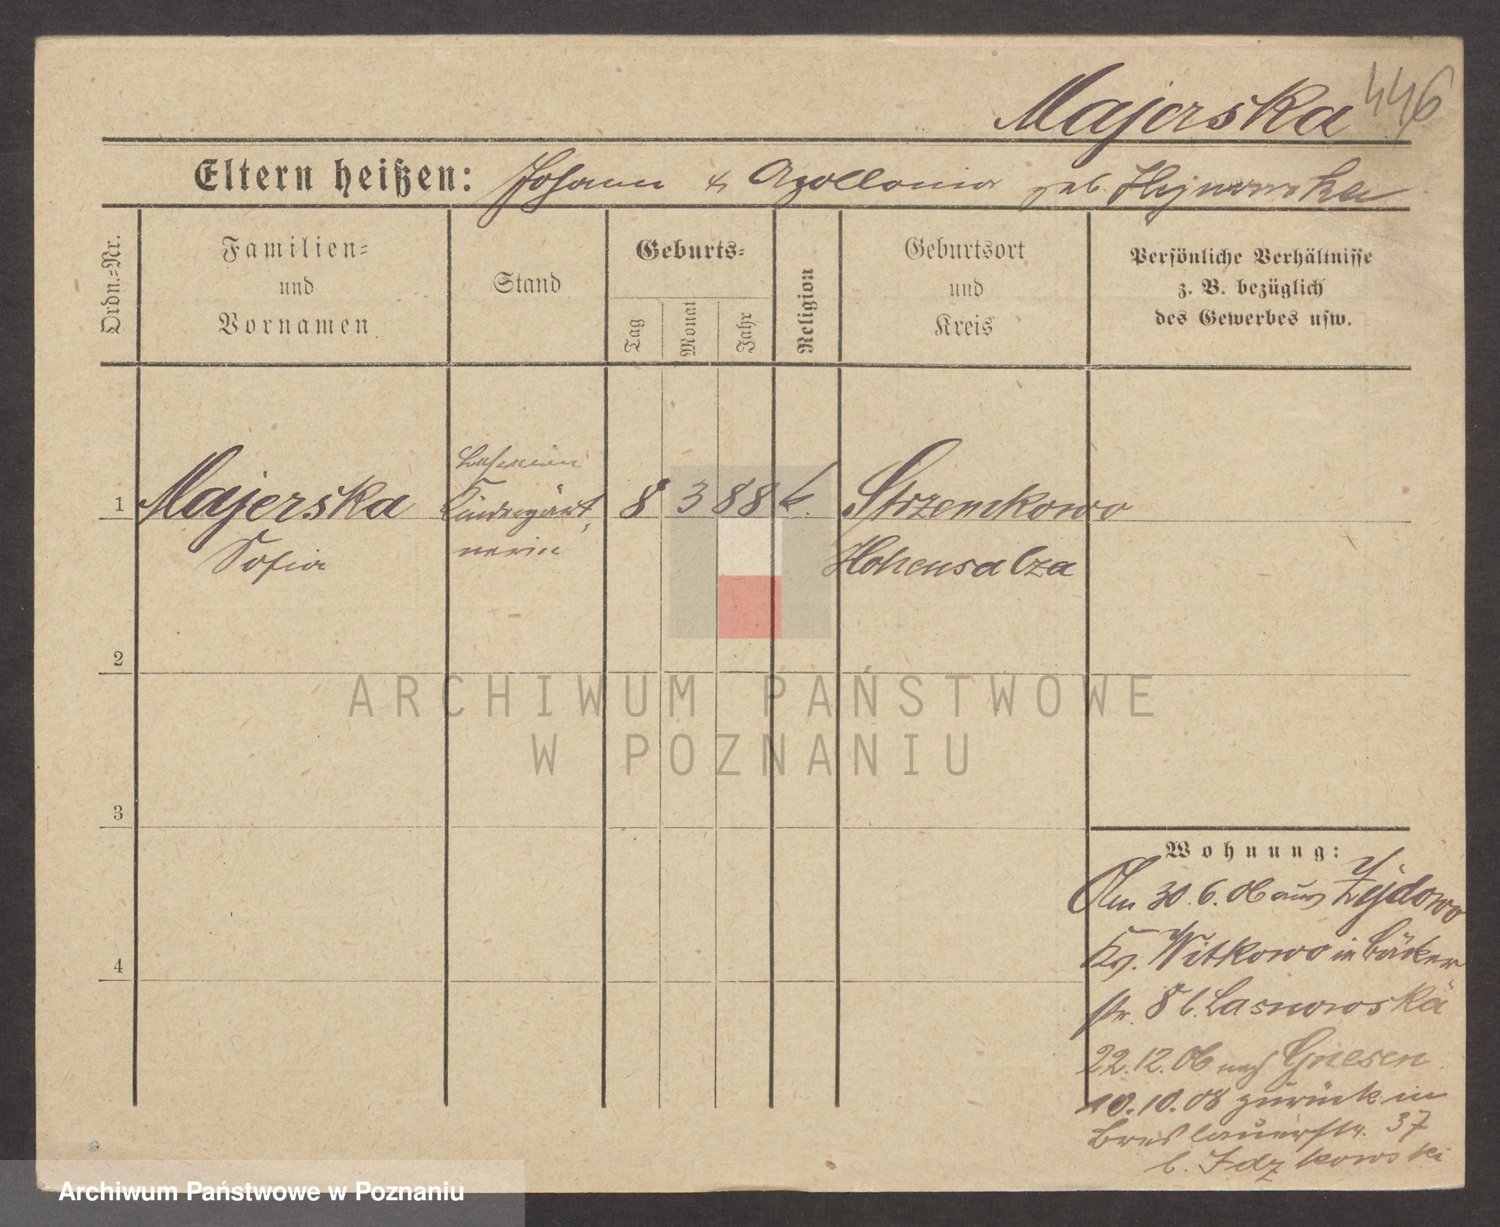 Majerska 446
Eltern heißen: Johann & Apollonia geb.
Ordn.=Nr.
Familien=
und
Vornamen
Stand
Geburts=
Tag
Monat
Jahr
Religion
Geburtsort
und
Kreis
Persönliche Verhältnisse
z. B. bezüglich
des Gewerbes usw.
1 Majerska
Sofia
Kindergärt
nerin
8 3 88 k.
Strzemkowo
Hohensalza
2
3
4
Wohnung:
Am 30.6.06 aus Zydowo
Kr. Witkowo in Bäcker
str. 8 b. Lasnowska
22.12.06 nach Gnesen
10.10.08 zurück in
Breslauerstr. 37
b. Idzkowski
ARCHIWUM PAŃSTWOWE
W POZNANIU
Archiwum Państwowe w Poznaniu